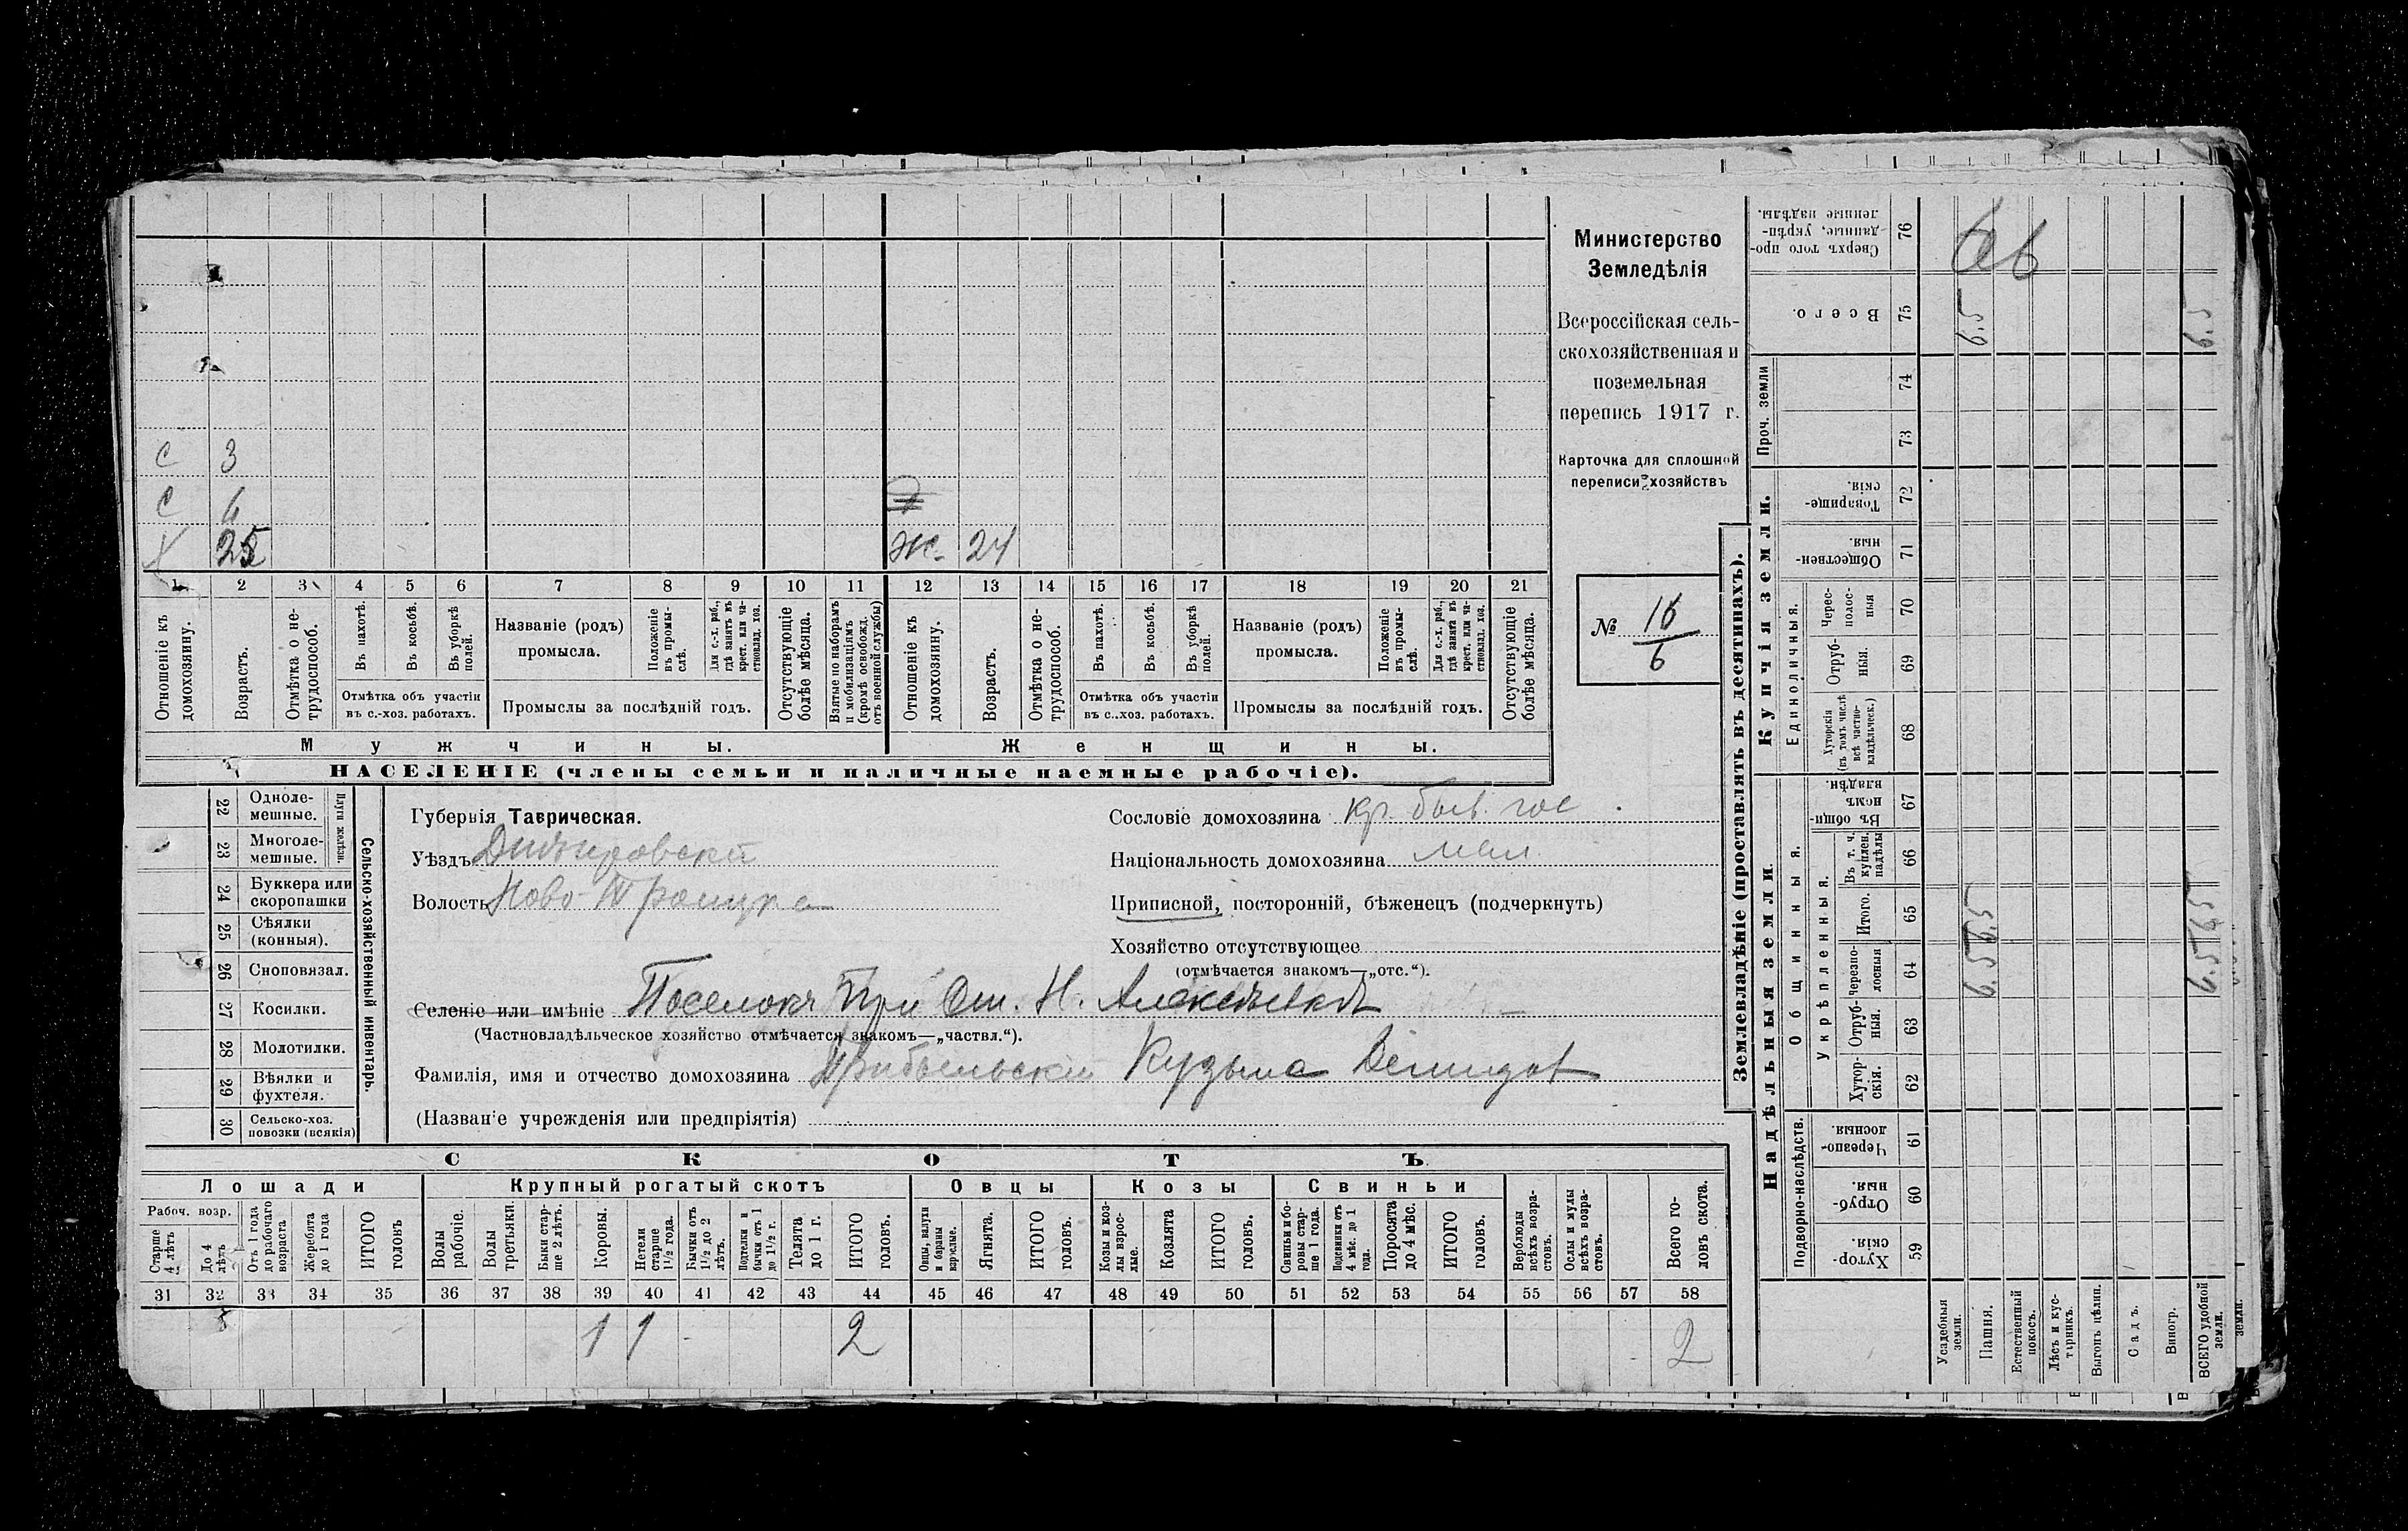 Министерство
Земледѣлія
Всероссійская сель-
скохозяйственная и
поземельная
перепись 1917 г.
Карточка для сплошной
переписи хозяйствъ
№ 16
6
с 3
с
Х 25
ж. 24
1 2 3 4 5 6 7 8 9 10 11 12 13 14 15 16 17 18 19 20 21
Отношеніе къ домохозяину.
Возрастъ.
Отмѣтка о не-трудоспособ.
Въ пахотѣ.
Въ косьбѣ.
Въ уборкѣ полей.
Отмѣтка объ участіи
въ с.-хоз. работахъ.
Названіе (родъ)
промысла.
Положеніе въ промы-слѣ.
Для с.-х. раб., гдѣ занятъ въ крест. или ча-стновлад. хоз.
Промыслы за послѣдній годъ.
Отсутствующіе болѣе мѣсяца.
Взятые по наборамъ и мобилизаціямъ (кромѣ освобожд. отъ военной службы)
Отношеніе къ домохозяину.
Возрастъ.
Отмѣтка о не-трудоспособ.
Въ пахотѣ.
Въ косьбѣ.
Въ уборкѣ полей.
Отмѣтка объ участіи
въ с.-хоз. работахъ.
Названіе (родъ)
промысла.
Положеніе въ промы-слѣ.
Для с.-х. раб., гдѣ занята въ крест. или ча-стновлад. хоз.
Промыслы за послѣдній годъ.
Отсутствующіе болѣе мѣсяца.
Мужчины.
Женщины.
НАСЕЛЕНІЕ (члены семьи и наличные наемные рабочіе).
Сельско-хозяйственный инвентарь.
Плуги желѣзн.
22 Одноле-мешные.
23 Многоле-мешные.
24 Буккера или скоропашки
25 Сѣялки (конныя).
26 Сноповязал.
27 Косилки.
28 Молотилки.
29 Вѣялки и фухтеля.
30 Сельско-хоз. повозки (всякія)
Губернія Таврическая.
Уѣздъ Днѣпровскій
Волость Ново-Троицка
Сословіе домохозяина кр. быв. гос
Національность домохозяина мал.
Приписной, посторонній, бѣженецъ (подчеркнуть)
Хозяйство отсутствующее
(отмѣчается знакомъ—„отс.“).
Селеніе или имѣніе Поселокъ при Ст. Н. Алексѣевкѣ
(Частновладѣльческое хозяйство отмѣчается знакомъ—„частвл.“).
Фамилія, имя и отчество домохозяина Прибыльскій Кузьма Демидов
(Названіе учрежденія или предпріятія)
СКОТЪ
Лошади
Крупный рогатый скотъ
Овцы
Козы
Свиньи
Рабоч. возр.
Старше 4 лѣтъ
До 4 лѣтъ
Отъ 1 года до рабочаго возраста
Жеребята до 1 года
ИТОГО головъ
Волы рабочіе.
Волы третьяки.
Быки стар-ше 2 лѣтъ.
Коровы.
Нетели старше 1½ года.
Бычки отъ 1½ до 2 лѣтъ.
Подтелки и бычки отъ 1 до 1½ г.
Телята до 1 г.
ИТОГО головъ.
Овцы, валухи и бараны взрослые.
Ягнята.
ИТОГО головъ.
Козы и коз-лы взрос-лые.
Козлята
ИТОГО головъ.
Свиньи и бо-ровы стар-ше 1 года.
Подсвинки отъ 4 мѣс. до 1 года.
Поросята до 4 мѣс.
ИТОГО головъ.
Верблюды всѣхъ возра-стовъ.
Ослы и мулы всѣхъ возра-стовъ.
Всего го-ловъ скота.
31 32 33 34 35 36 37 38 39 40 41 42 43 44 45 46 47 48 49 50 51 52 53 54 55 56 57 58
1 1 2 2
Землевладѣніе (проставлять въ десятинахъ).
Надѣльныя земли.
Купчія земли.
Проч. земли
Подворно-наслѣдств.
Общинныя.
Укрѣпленныя.
Единоличныя.
59 Хутор-скія.
60 Отруб-ныя.
61 Черезпо-лосныя
62 Хутор-скія.
63 Отруб-ныя.
64 Черезпо-лосныя 6.5 6.5
65 Итого. 6.5 6.5
66 Въ т. ч. куплен. надѣлы
67 Въ общин-номъ владѣн.
68 Хуторскія (въ томъ числѣ всѣ частно-владѣльческ.)
69 Отруб-ныя.
70 Черес-полос-ныя
71 Обществен-ныя.
72 Товарище-скія.
73
74
75 Всего. 6.5 6.5
76 Сверхъ того про-данные, укрѣп-ленные надѣлы.
Усадебныя земли.
Пашня.
Естественный покосъ.
Лѣсъ и кус-тарникъ.
Выгонъ цѣлин.
Садъ.
Виногр.
ВСЕГО удобной земли.
земли.